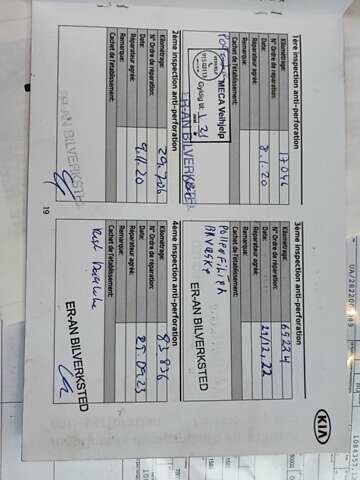 1ère inspection anti-perforation
Kilométrage: 17046
N° Ordre de réparation:
Date: 8.1.20
Réparateur agréé:
Remarque:
Cachet de l'établissement:
MECA Veihjelp
Gyldig til: 1.21
ER-AN BILVERKSTED
2ème inspection anti-perforation
Kilométrage: 29.706
N° Ordre de réparation:
Date: 9.4.20
Réparateur agréé:
Remarque:
Cachet de l'établissement:
ER-AN BILVERKSTED
19
3ème inspection anti-perforation
Kilométrage: 69234
N° Ordre de réparation:
Date: 21/12.22
Réparateur agréé:
Remarque:
Cachet de l'établissement:
ER-AN BILVERKSTED
4ème inspection anti-perforation
Kilométrage: 83836
N° Ordre de réparation:
Date: 25.09.23
Réparateur agréé:
Remarque:
Cachet de l'établissement:
ER-AN BILVERKSTED
KIA